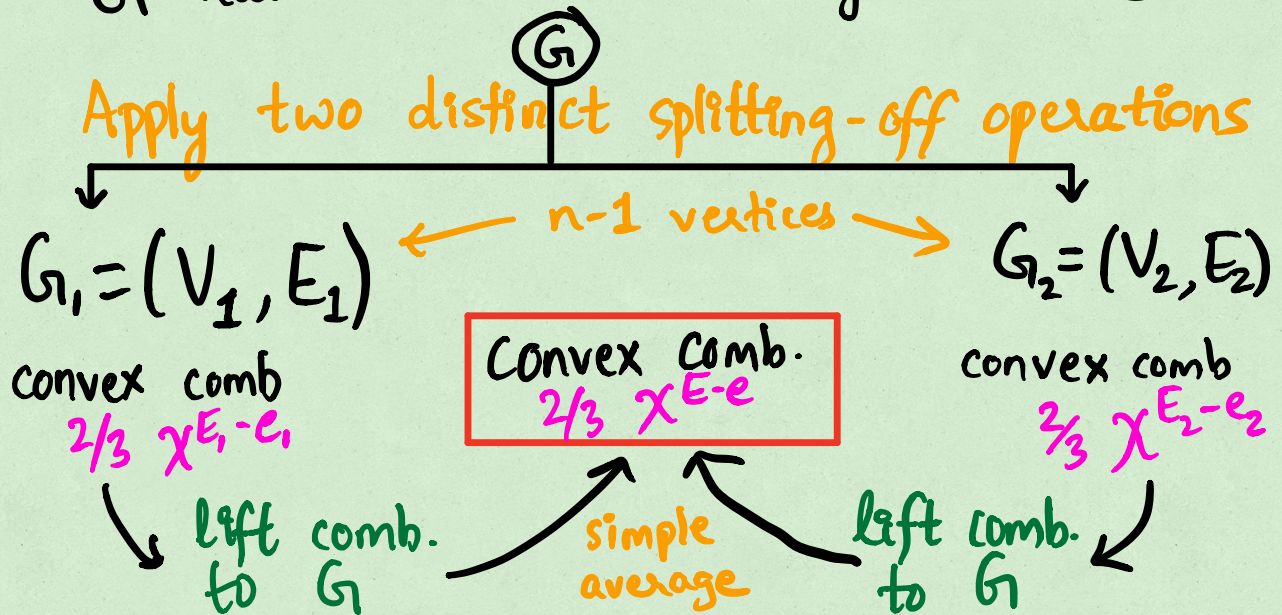 G
Apply two distinct splitting-off operations
n-1 vertices
G₁=(V₁,E₁)
G₂=(V₂,E₂)
convex comb
2/3 χ^{E₁-e₁}
Convex Comb.
2/3 χ^{E-e}
convex comb
2/3 χ^{E₂-e₂}
lift comb.
to G
simple
average
lift comb.
to G